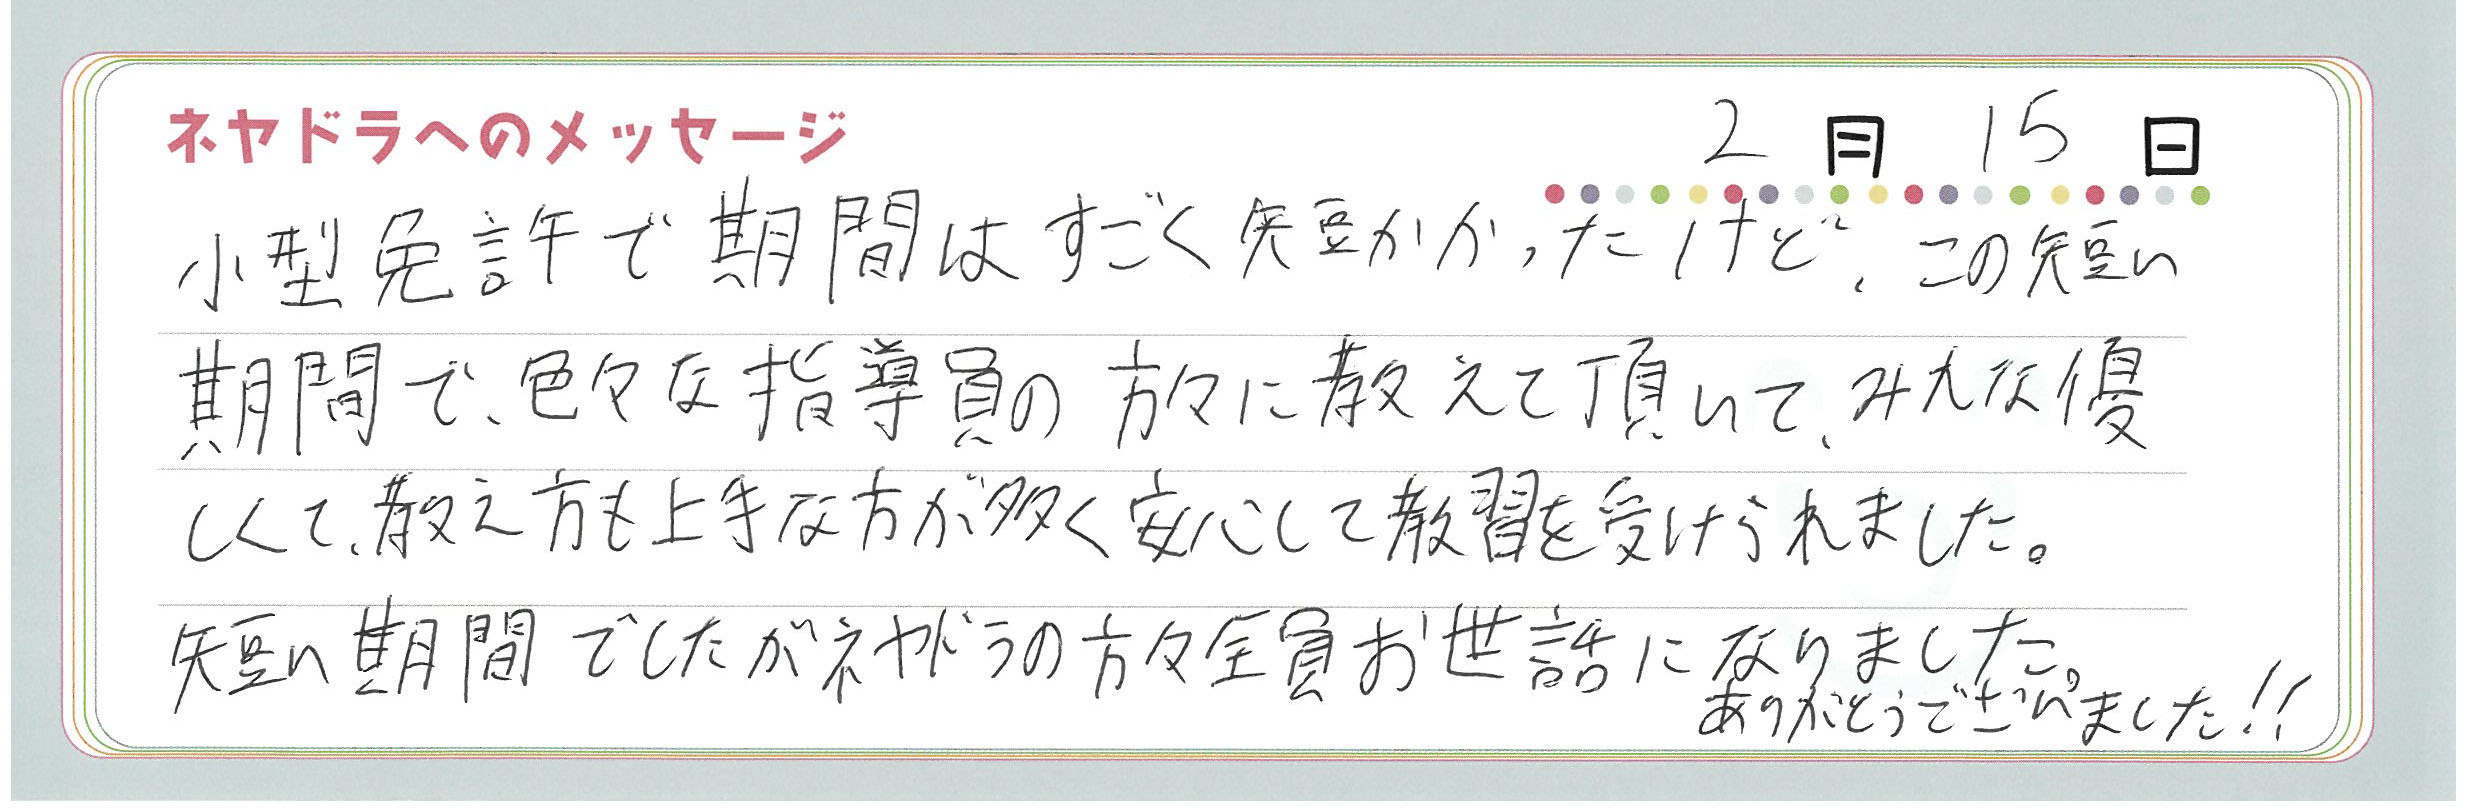 ネヤドラへのメッセージ
2月15日
小型免許で期間はすごく短かかったけど、この短い
期間で、色々な指導員の方々に教えて頂いて、みんな優
しくて、教え方も上手な方が多く安心して教習を受けられました。
短い期間でしたがネヤドラの方々全員お世話になりました。
ありがとうございました!!